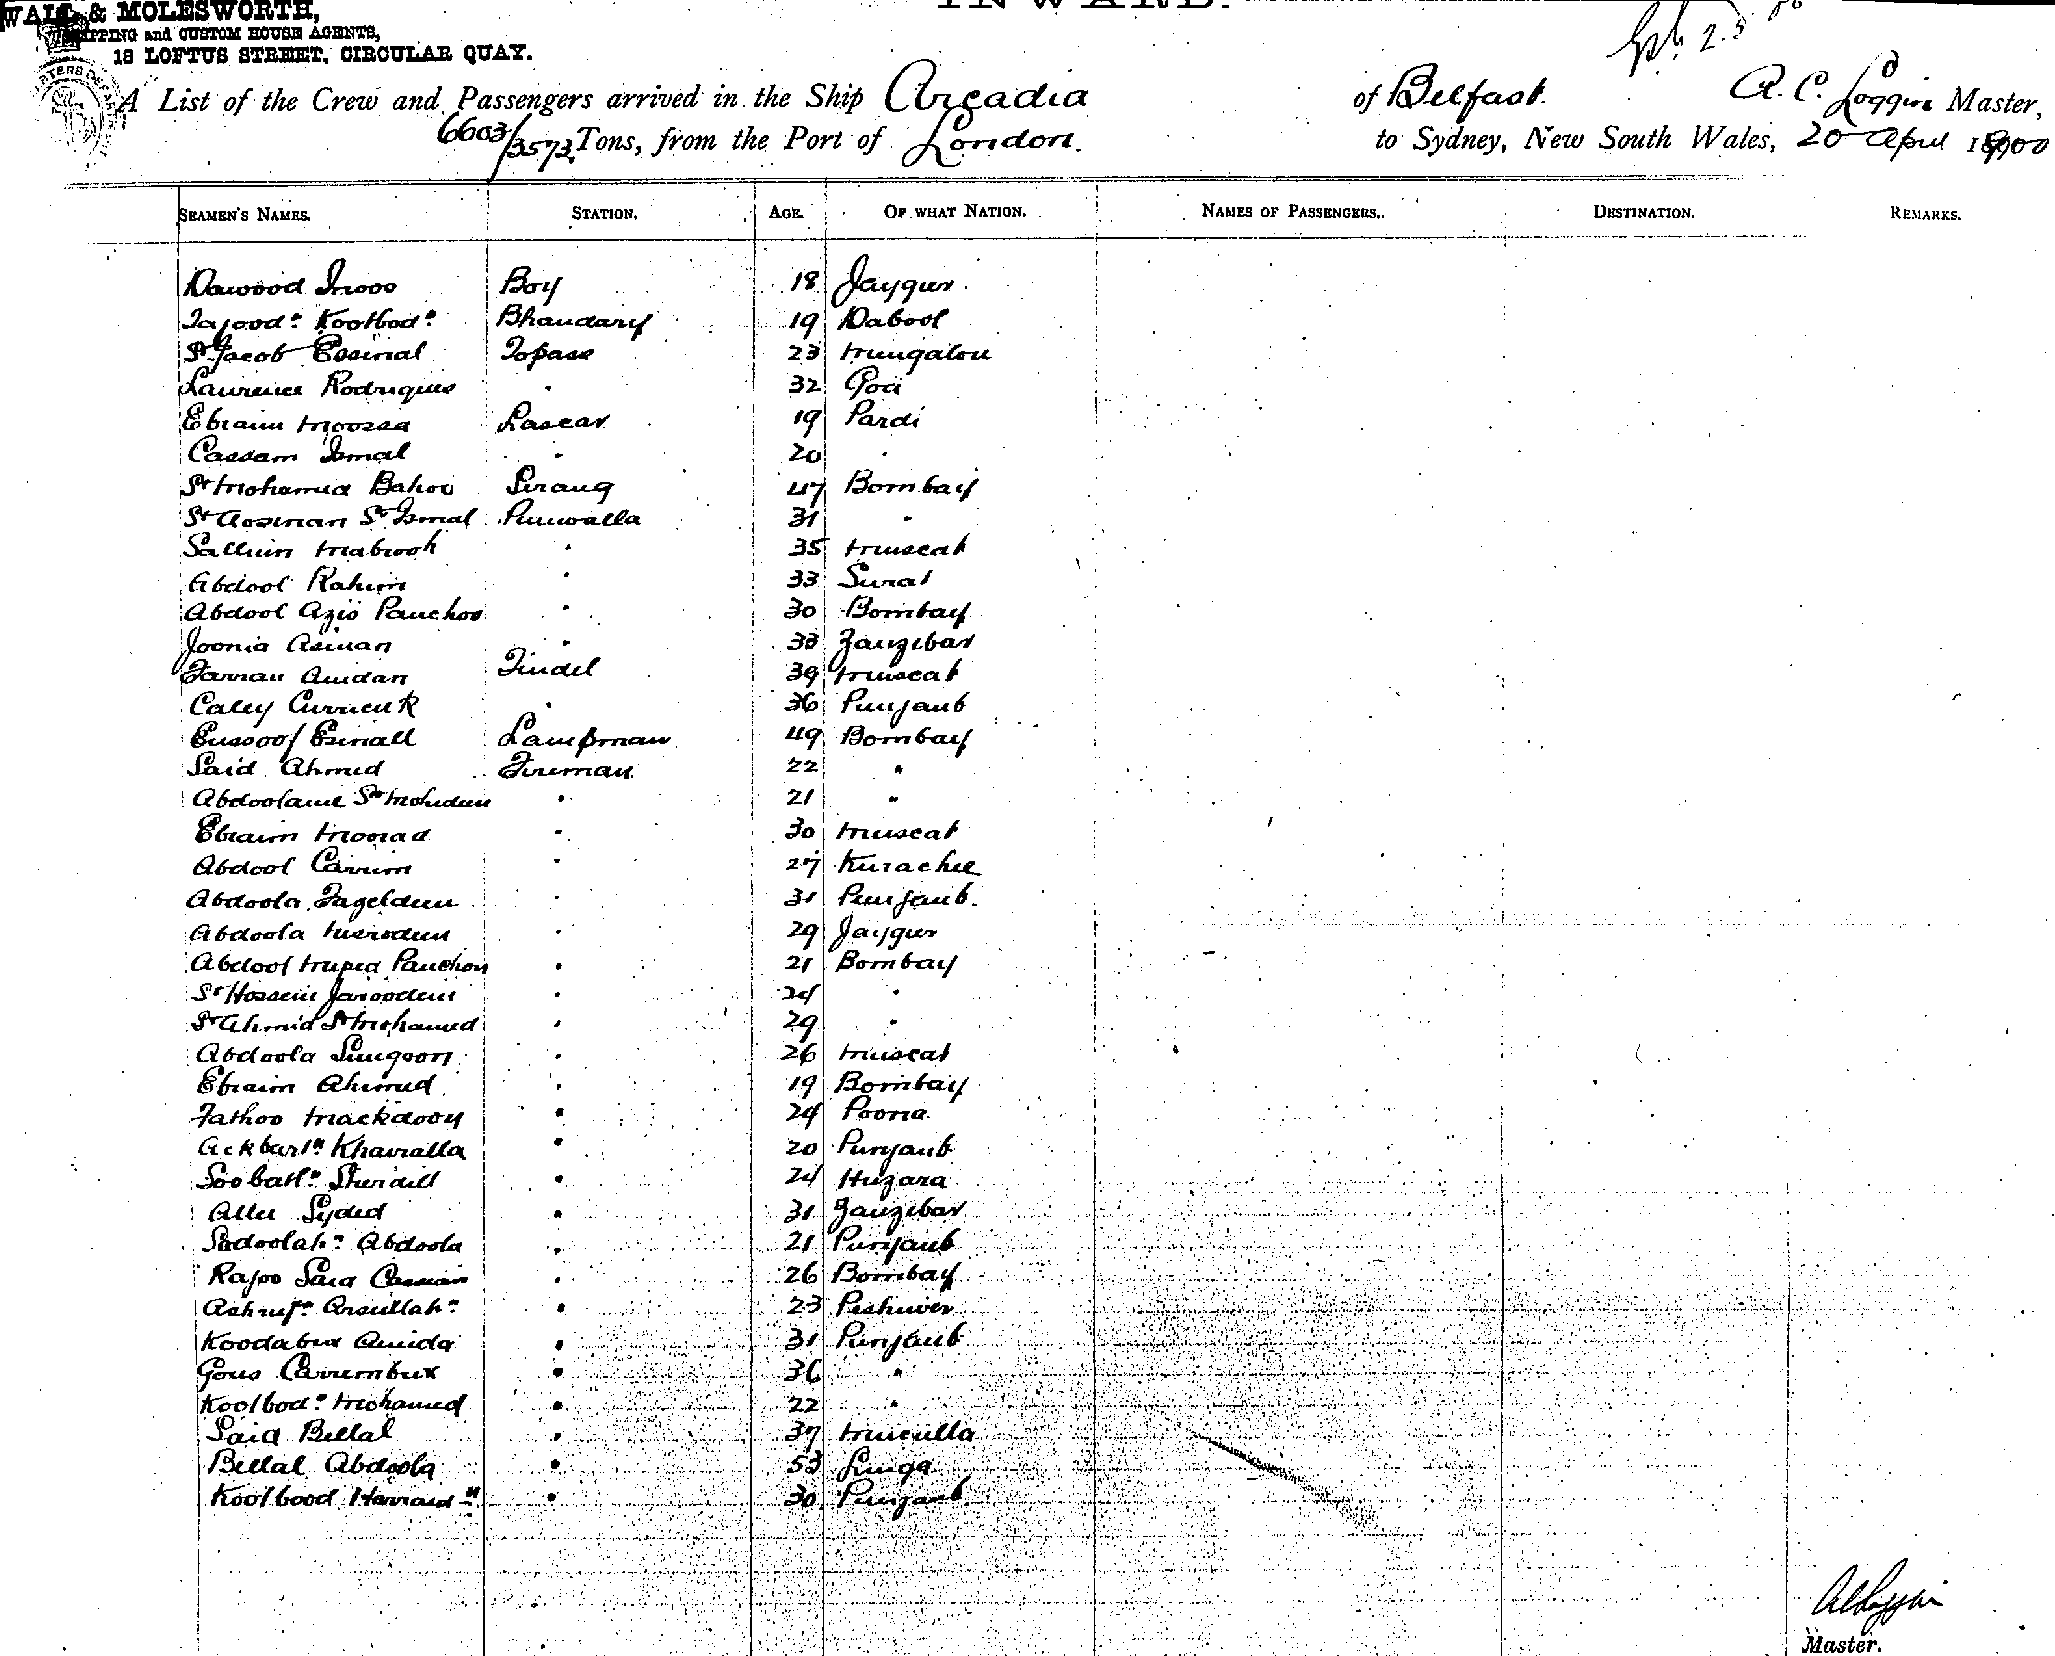 WALL & MOLESWORTH,
SHIPPING and CUSTOM HOUSE AGENTS,
18 LOFTUS STREET, CIRCULAR QUAY.
INWARD.
A List of the Crew and Passengers arrived in the Ship Arcadia of Belfast. A. C. Loggin Master,
6603/3573 Tons, from the Port of London. to Sydney, New South Wales, 20 April 1900
SEAMEN'S NAMES. STATION. AGE. OF WHAT NATION. NAMES OF PASSENGERS. DESTINATION. REMARKS.
Dawood Inoos Boy 18 Jaygur
Tajood.n Kootbod.n Bhandary 19 Dabool
Sk Jacob Essinal Topass 23 Mungalou
Laurence Rodrigues " 32 Goa
Ebraim Moossa Lascar 19 Pardi
Cassam Ismal " 20 "
Sk Mohamed Bahoo Serang 47 Bombay
Sk Aosman Sk Ismal Punwalla 31 "
Sallim Mabrook " 35 Muscat
Abdool Rahim " 33 Surat
Abdool Azis Panchoo " 30 Bombay
Joonia Asman " 33 Zanzibar
Farran Amdan Tindel 39 Muscat
Caley " 36 Punjaub
Eussoof Esmall Lampman 49 Bombay
Said Ahmed Fireman 22 "
" 21 "
Ebraim Moorad " 30 Muscat
Abdool Carrim " 27 Kurachee
Abdoola Fageldeen " 31 Punjaub.
Abdoola " 29 Jaygur
Abdool Panchoo " 21 Bombay
Sk Hossein Jainoodein " 24 "
Sk Ahmed Sk Mohamed " 29 "
Abdoola Sungoor " 26 Muscat
Ebraim Ahmed " 19 Bombay
Fathoo Mackdoom " 24 Poona
Ackbark.n Khairalla " 20 Punjaub
Soobatk.n " 24 Huzara
Allee Syded " 31 Zanzibar
Sadoolak.n Abdoola " 21 Punjaub
Rajoo Said Cassum " 26 Bombay
Ashruf.n " 23 Peshwer
Koodabux Amida " 31 Punjaub
Gous Carrumbux " 36 "
Kootbod.n Mohamed " 22 "
Said Bellal " 37
Bellal Abdoola " 53 Linga
Kootbood " 30 Punjaub
Master.